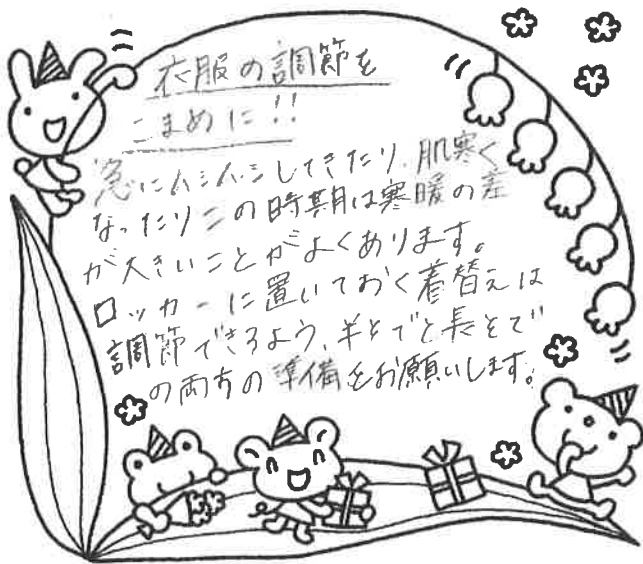 衣服の調節を
こまめに!!
急にムシムシしてきたり、肌寒く
なったりこの時期は寒暖の差
が大きいことがよくあります。
ロッカーに置いておく着替えは
調節できるよう、半そでと長そで
の両方の準備をお願いします。